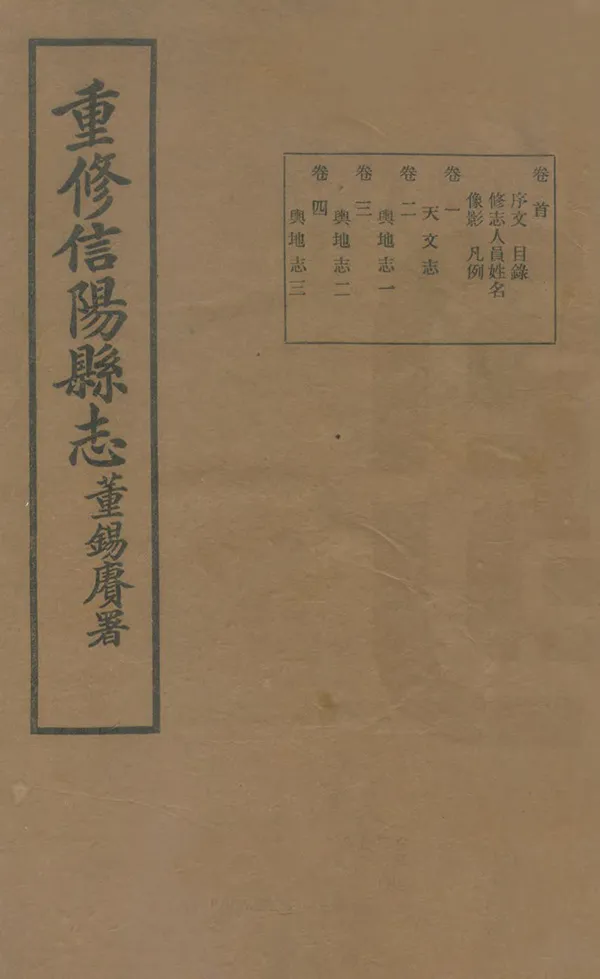 卷首
序文 目錄
修志人員姓名
像影 凡例
卷一
天文志
卷二
輿地志一
卷三
輿地志二
卷四
輿地志三
重修信陽縣志 董錫賡署